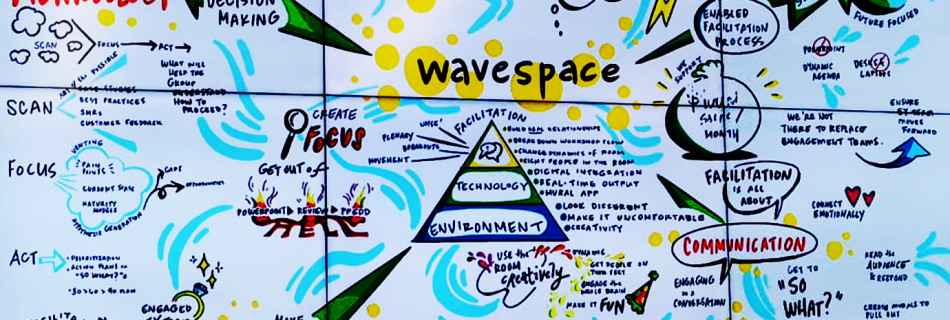 DECISION
MAKING
SCAN
FOCUS
ACT
WHAT WILL
HELP THE
GROUP
UNDERSTAND
HOW TO
PROCEED?
SCAN
BEST PRACTICES
SMEs
CUSTOMER FEEDBACK
FOCUS
VENTING
PAIN
POINTS
CURRENT STATE
MATURITY
MODELS
HYPOTHESIS GENERATION
GAPS
OPPORTUNITIES
ACT
PRIORITIZATION
ACTION PLANS or
"SO WHAT?"s
ENGAGED
MAKE
CREATE
FOCUS
GET OUT of
POWERPOINT
REVIEW
wavespace
FACILITATION
VOICE
PLENARY
BREAKOUTS
MOVEMENT
TECHNOLOGY
ENVIRONMENT
BUILD REAL RELATIONSHIPS
BREAK DOWN WORKSHOP FLOW
CHANGE DYNAMICS OF ROOM
RIGHT PEOPLE IN THE ROOM
DIGITAL INTEGRATION
REAL-TIME OUTPUT
MURAL APP
LOOK DIFFERENT
MAKE IT UNCOMFORTABLE
CREATIVITY
USE the
ROOM
creatively
DYNAMIC
GET PEOPLE ON
THEIR FEET
ENGAGE the
WHOLE BRAIN
MAKE IT FUN
ENABLED
FACILITATION
PROCESS
FUTURE FOCUSED
POWERPOINT
DYNAMIC
AGENDA
WE
SUPPORT
MONTH
WE'RE NOT
THERE TO REPLACE
ENGAGEMENT TEAMS.
ENSURE
MOVES
FORWARD
FACILITATION
IS ALL
ABOUT
COMMUNICATION
CONNECT
EMOTIONALLY
ENGAGING
IN a
CONVERSATION
GET TO
"SO
WHAT?"
READ the
AUDIENCE
& RESPOND
PULL OUT